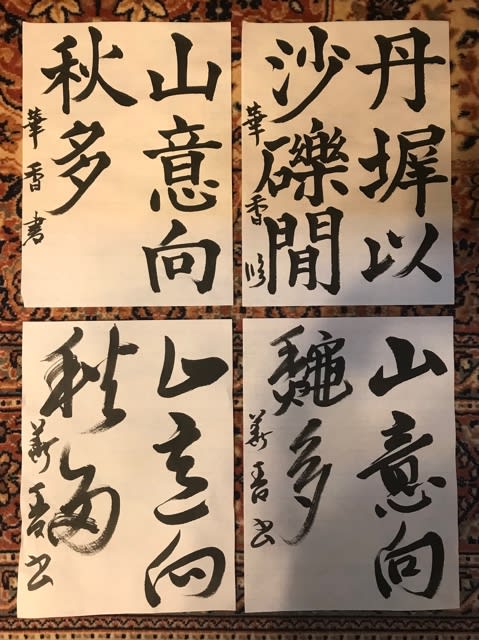 丹墀以
沙礫間
華香
山意向
秋多
華香書
山意向
龝多
華香書
山意向
秋多
華香書